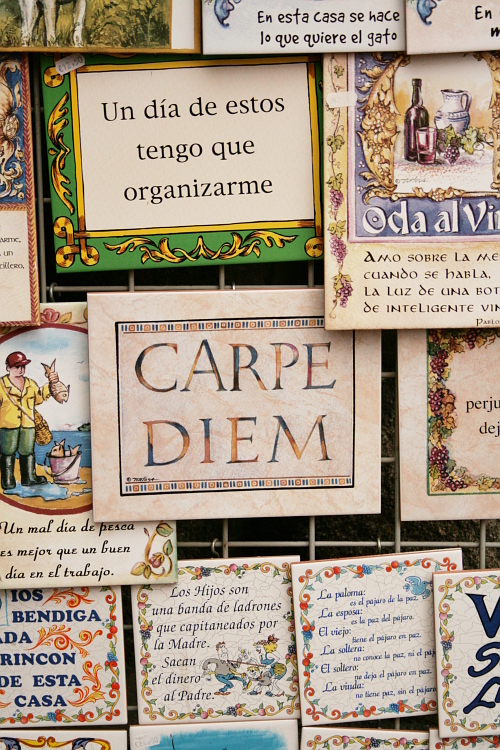 En esta casa se hace
lo que quiere el gato
En
Un día de estos
tengo que
organizarme
Oda al Vin
Amo sobre la me
cuando se habla,
la luz de una bot
de inteligente vin
Pablo
CARPE
DIEM
perju
dej
Un mal día de pesca
es mejor que un buen
día en el trabajo.
IOS
BENDIGA
ADA
RINCON
DE ESTA
CASA
Los Hijos son
una banda de ladrones
que capitaneados por
la Madre.
Sacan
el dinero
al Padre.
La paloma:
es el pájaro de la paz.
La esposa:
es la paz del pájaro.
El viejo:
tiene el pájaro en paz.
La soltera:
no conoce la paz, ni el pája
El soltero:
no deja el pájaro en paz.
La viuda:
no tiene paz, sin pája